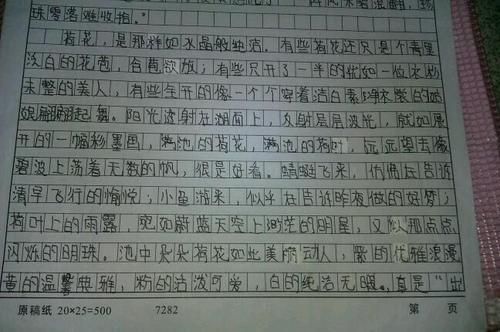 珠零落难收拾。"
荷花，是那样如水晶般纯洁。有些荷花还只是个青里
泛白的花苞，含苞欲放；有些只开了一半的犹如一位水妆
未整的美人；有些全开的像一个个穿着洁白素净衣裳的姑
娘翩翩起舞。阳光透射在湖面上，反射层层波光，就如展
开的一幅彩墨画，满池的荷花，满池的荷叶，远远望去像
碧波上荡着无数的帆，很是好看。蜻蜓飞来，仿佛在告诉
清早飞行的愉悦；小鱼游来，似乎在告诉昨夜做的好梦；
荷叶上的雨露，宛如蔚蓝天空上渺茫的明星，又似那点点
闪烁的明珠。池中朵朵荷花如此美丽动人，紫的优雅浪漫
黄的温馨典雅，粉的活泼可爱，白的纯洁无暇。真是"出
原稿纸 20×25=500 7282 第 页